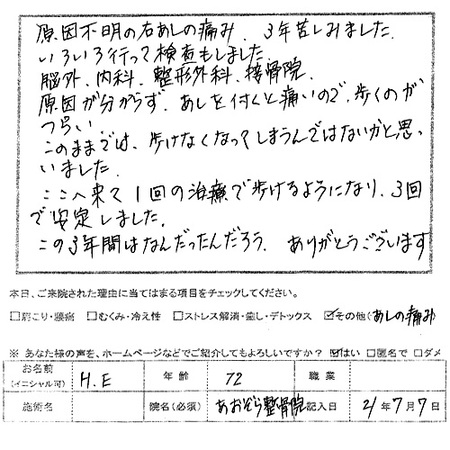 原因不明の右あしの痛み、3年苦しみました。
いろいろ行って検査もしました
脳外、内科、整形外科、接骨院、
原因が分からず、あしを付くと痛いので、歩くのが
つらい
このままでは、歩けなくなってしまうんではないかと思
いました。
ここへ来て1回の治療で歩けるようになり、3回
で安定しました。
この3年間はなんだったんだろう、ありがとうございます
本日、ご来院された理由に当てはまる項目をチェックしてください。
□肩こり・腰痛 □むくみ・冷え性 □ストレス解消・癒し・デトックス ☑その他(あしの痛み)
※ あなた様の声を、ホームページなどでご紹介してもよろしいですか? ☑はい □匿名で □ダメ
お名前 (イニシャル可) H.E 年齢 72 職業
施術名 院名(必須) あおぞら整骨院 記入日 21年7月7日